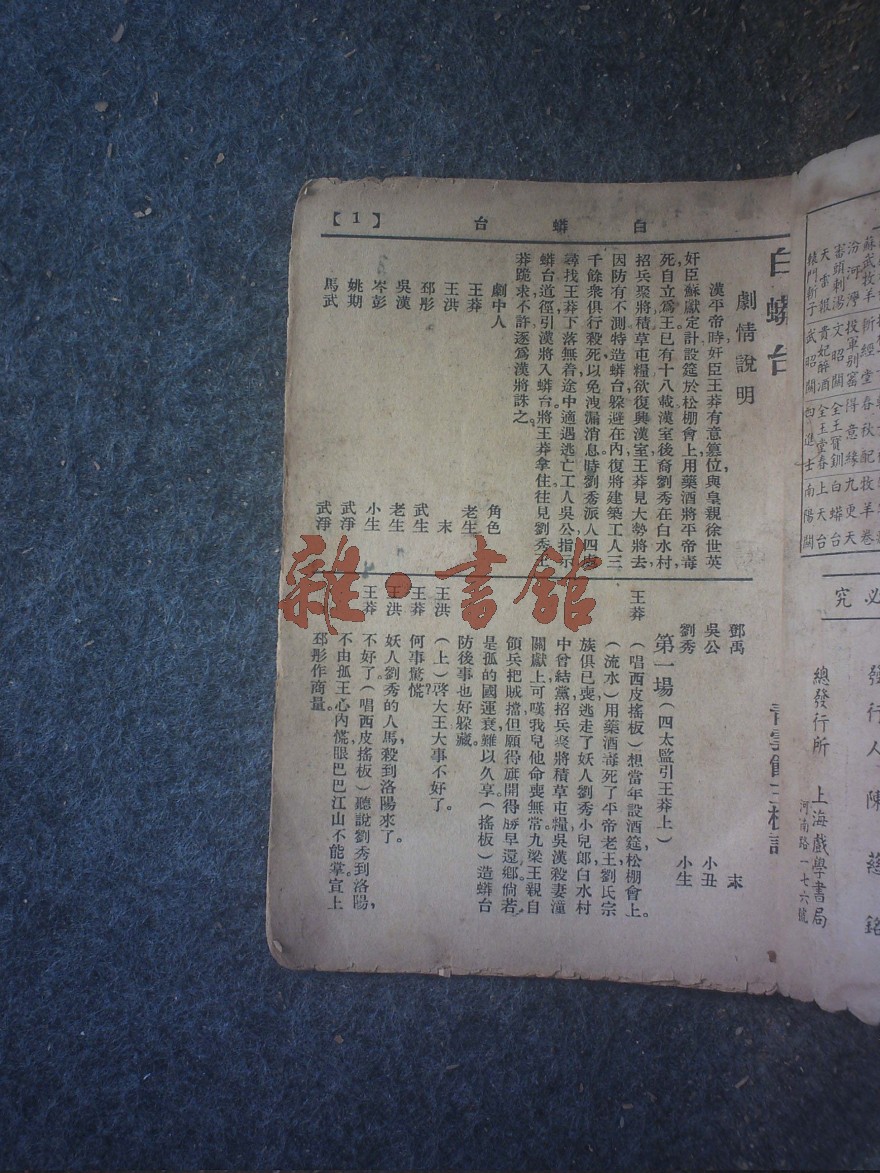 【1】
白蟒台
白蟒台
劇情說明
漢平帝時奸臣王莽有意篡位與皇親徐世英
奸臣蘇獻定計設筵於松棚會上用藥酒將平帝毒
死自立爲王已有十八載漢室後裔劉秀在白水村
招兵聚將積草屯糧欲復興漢室王莽見大勢將去
因防有不測特造蟒台躲避在內復將建築工人三
千餘衆俱行殺死以免洩漏消息。時劉秀派人四處
尋找王莽下落無着途中適遇逃亡工人吳公指示
蟒台道徑引漢將入蟒台。將王莽拿住往見劉秀王
莽跪求不許逐爲漢將誅之。
劇中人 角色
王莽 老生
王洪 末
邳彤 武生
吳漢 老生
岑彭 小生
姚期 武淨
馬武 武淨
鄧禹 末
吳公 小丑
劉秀 小生
第一場(四太監引王莽上)
王莽 (唱西皮搖板)想當年設酒筵松棚會上。
(流水)用藥酒毒死了平帝老王劉氏宗
族俱已喪逃走了妖人劉秀小兒郎白水村
中曾結黨招兵聚將積草屯糧吳漢殺妻潼
關獻上可嘆我兒他命喪無常九梁王親自
領兵把賊擋但願得旗開得勝早還鄉倘若
是孤的國運衰難以久享(搖板)造蟒台
防後事也好躲藏。
王洪 (上)啓大王大事不好了。
王莽 何事驚慌?
王洪 妖人劉秀的人馬殺到洛陽來了。
王莽 不好了(唱西皮搖板)聽說劉秀到洛陽,
不由孤王心內慌眼巴巴江山不能掌宣上
邳彤作商量。
蘇武牧羊
汾河灣
審頭刺湯
天雷報
轅門斬子
新經堂
投軍別窰
文昭關
貴妃醉酒
武昭關
春秋配
得意緣
全王寶釧
全玉堂春
四進士
牧羊卷
九更天
白蟒台
上天台
南陽關
必究
發行人 陳慈銘
總發行所 上海戲學書局
河南路一七六號
雜·書館